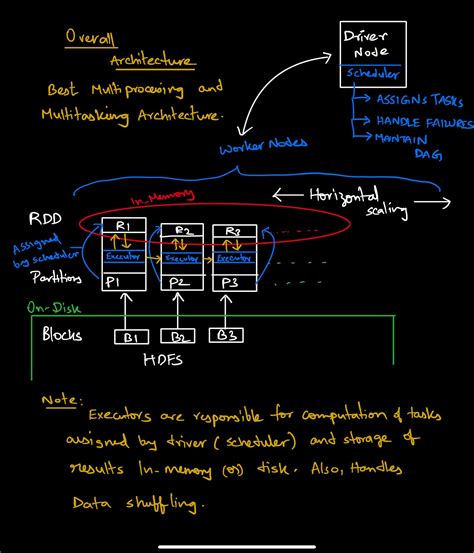 Overall
Architecture
Best Multiprocessing and
Multitasking Architecture.
Driver
Node
Scheduler
ASSIGNS TASKS
HANDLE FAILURES
MAINTAIN
DAG
Worker Nodes
In-Memory
Horizontal
scaling
RDD
R1 R2 R3
Assigned
by scheduler
Executor Executor Executor
Partitions
P1 P2 P3
On-Disk
Blocks
B1 B2 B3
HDFS
Note:
Executors are responsible for computation of tasks
assigned by driver (scheduler) and storage of
results In-memory (or) disk. Also, Handles
Data shuffling.